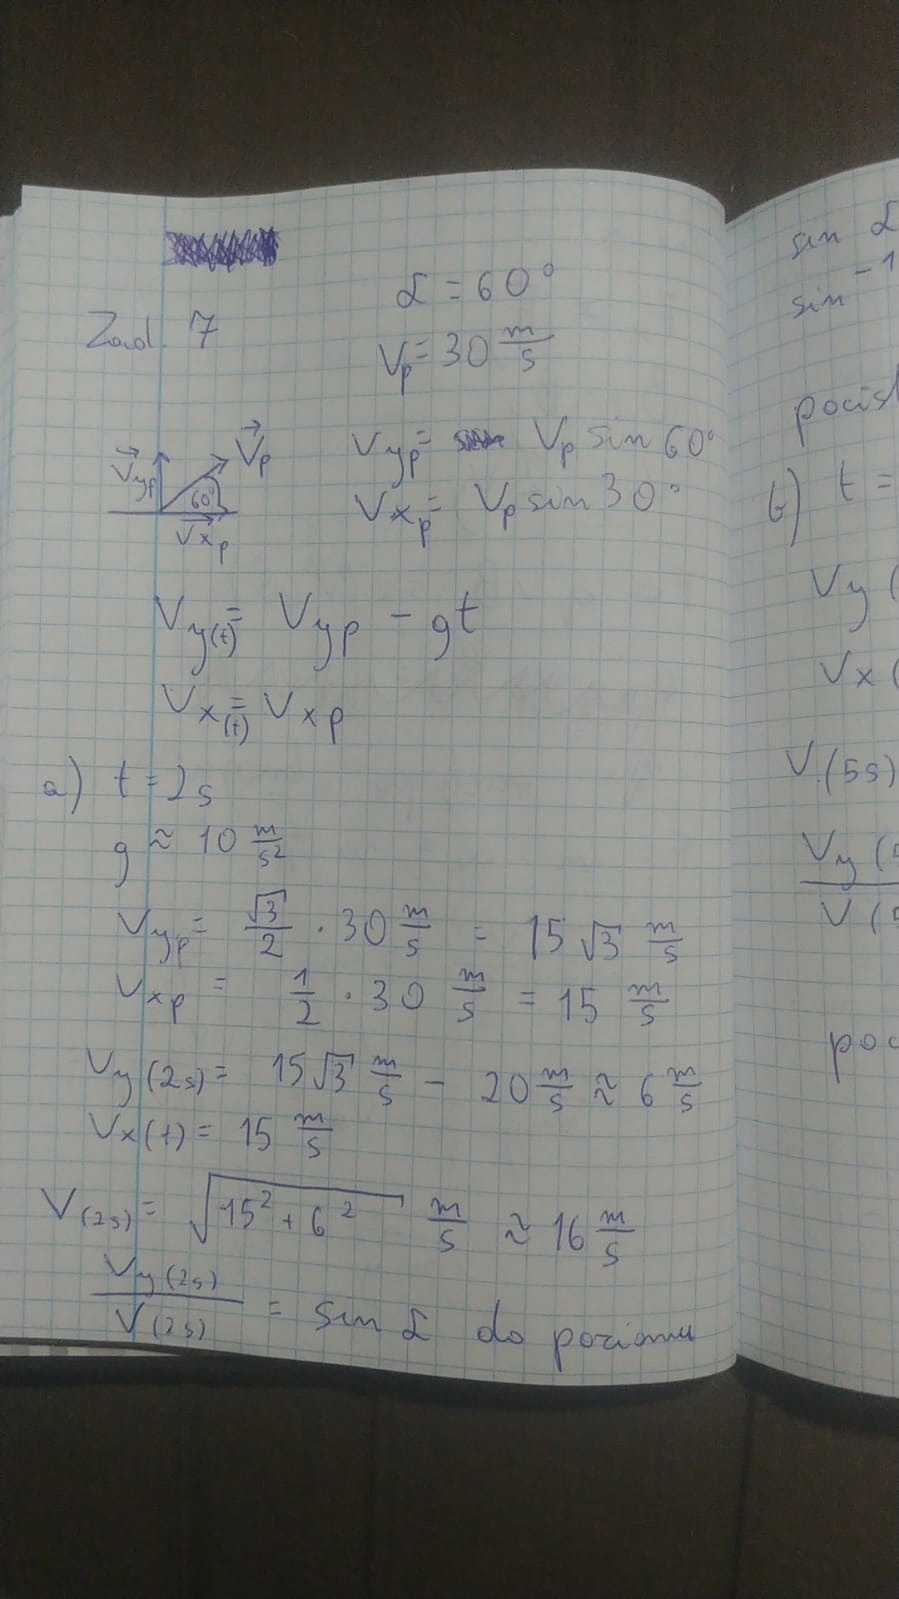 Zad. 7
α = 60°
Vp = 30 m/s
Vyp
Vp
60°
Vxp
Vyp = Vp sin 60°
Vxp = Vp sin 30°
Vy(t) = Vyp - gt
Vx(t) = Vxp
a) t = 2s
g ≈ 10 m/s²
Vyp = √3/2 · 30 m/s = 15√3 m/s
Vxp = 1/2 · 30 m/s = 15 m/s
Vy(2s) = 15√3 m/s - 20 m/s ≈ 6 m/s
Vx(t) = 15 m/s
V(2s) = √(15² + 6²) m/s ≈ 16 m/s
Vy(2s)/V(2s) = sin α do poziomu
sin α
sin⁻¹
b) t =
Vy (
Vx (
V(5s)
Vy (
V (